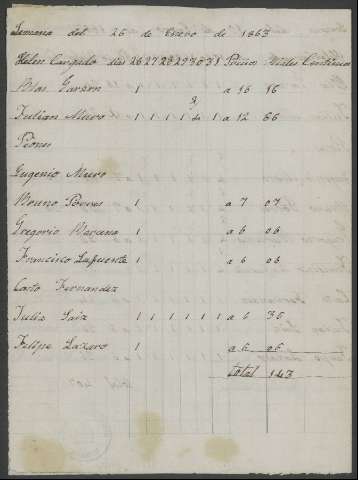 Semana del 26 de Enero de 1863
dias 26 27 28 29 30 31 Precios Reales Centimos
Blas Garzon 1 a 16 16
Julian Muro 1 1 1 1 1 a 12 66
Peones
Eugenio Muro
Bruno Porres 1 a 7 07
Gregorio 1 a 6 06
Francisco Lapuente 1 a 6 06
Casto Fernandez
Julio Saiz 1 1 1 1 1 1 a 6 36
Felipe Lazaro 1 a 6 06
total 143